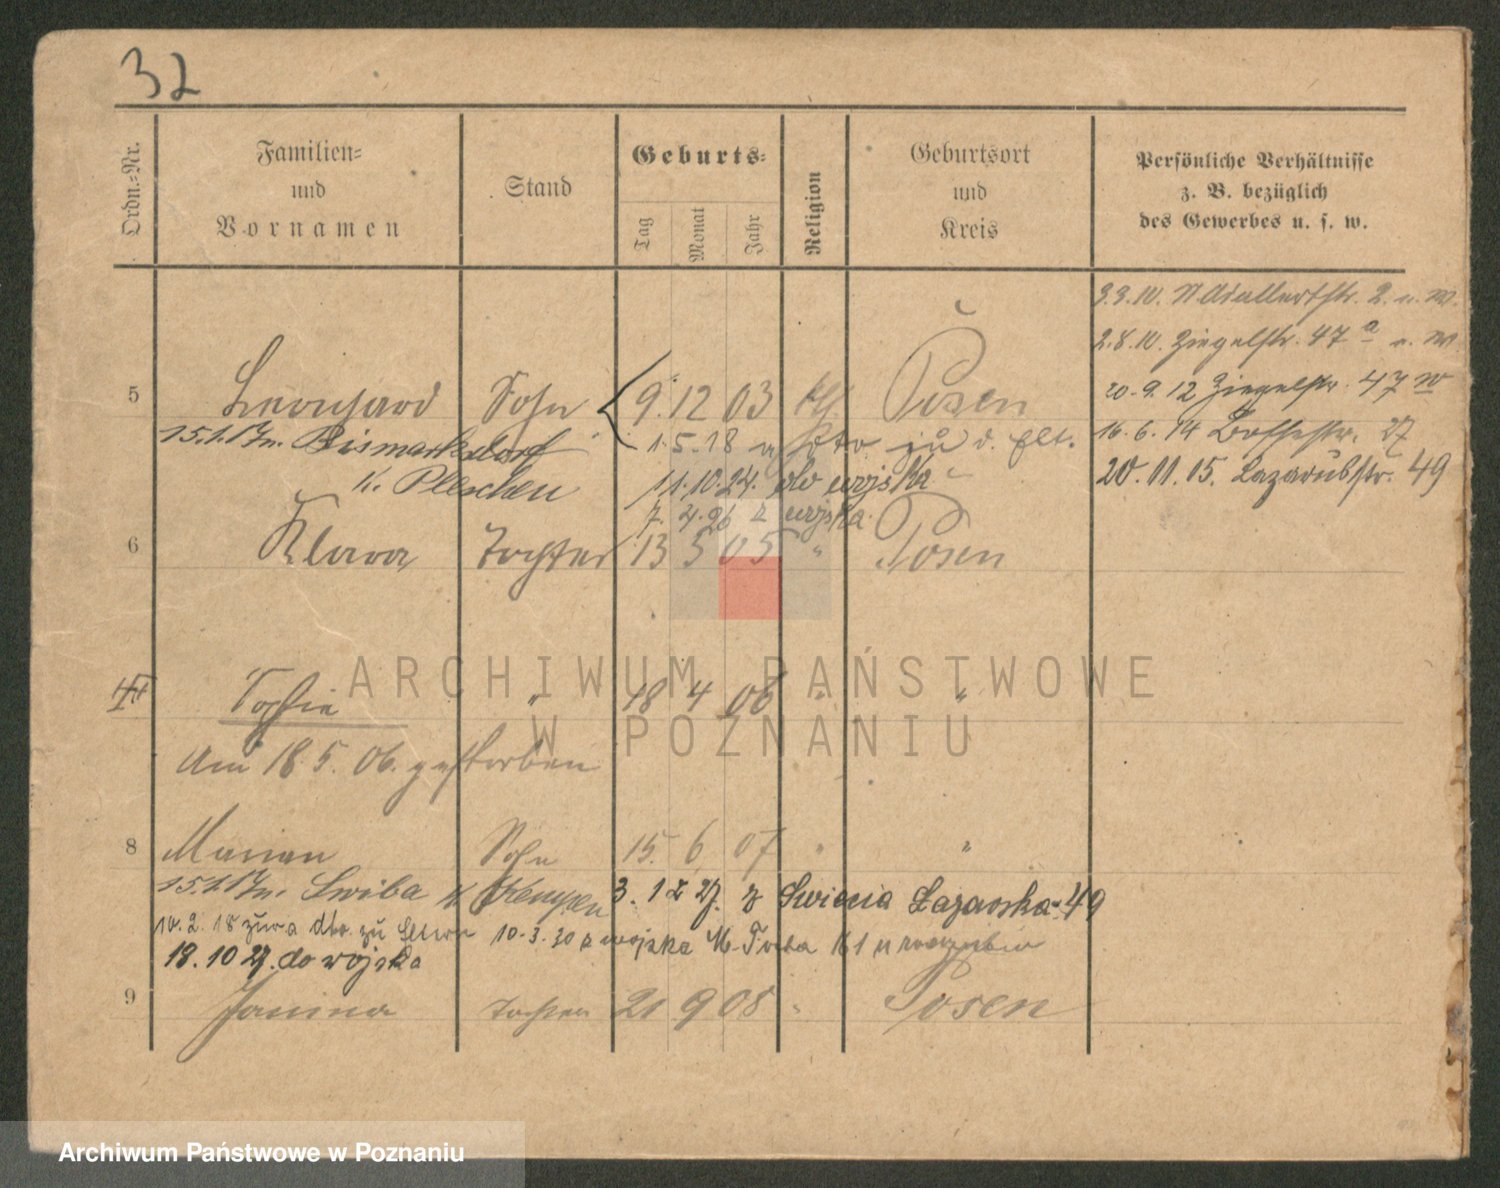 32
Ordn.-Nr.
Familien-
und
Vornamen
Stand
Geburts-
Tag
Monat
Jahr
Religion
Geburtsort
und
Kreis
Persönliche Verhältnisse
z. B. bezüglich
des Gewerbes u. s. w.
3.3.10. N. Adalbertstr. 2. u. W.
2.8.10. Ziegelstr. 47a u. W
20.9.12 Ziegelstr. 47 W
16.6.14 27
20.11.15. Lazarusstr. 49
5 Leonhard Sohn 9. 12 03 kth. Posen
15.1.17 n. Bismarksdorf 1.5.18 zu d. Elt.
K. Pleschen 11.10.24. do wojska
7. 4. 26 z wojska
6 Klara Tochter 13 5 05 " Posen
Sophie " 18 4 06 " "
Am 18.5.06. gestorben
8 Marian Sohn 15. 6 07 " "
15.1.17 n. Swiba K. Kempen 3. 12 27. z Lazarska 49
10.2.18 zur. zu Eltern 10.3.30 z wojska
18.10 27. do wojska
9 Janina Tochter 21 9 08 " Posen
ARCHIWUM PAŃSTWOWE
W POZNANIU
Archiwum Państwowe w Poznaniu